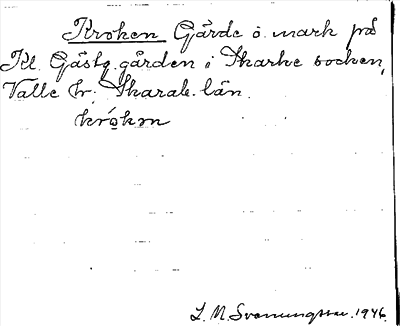 Kroken Gärde o. mark på
Kl. Gästg.gården i Skarke socken,
Valle hr. Skarab. län.
krókm
L. M. Svenungsson. 1946.